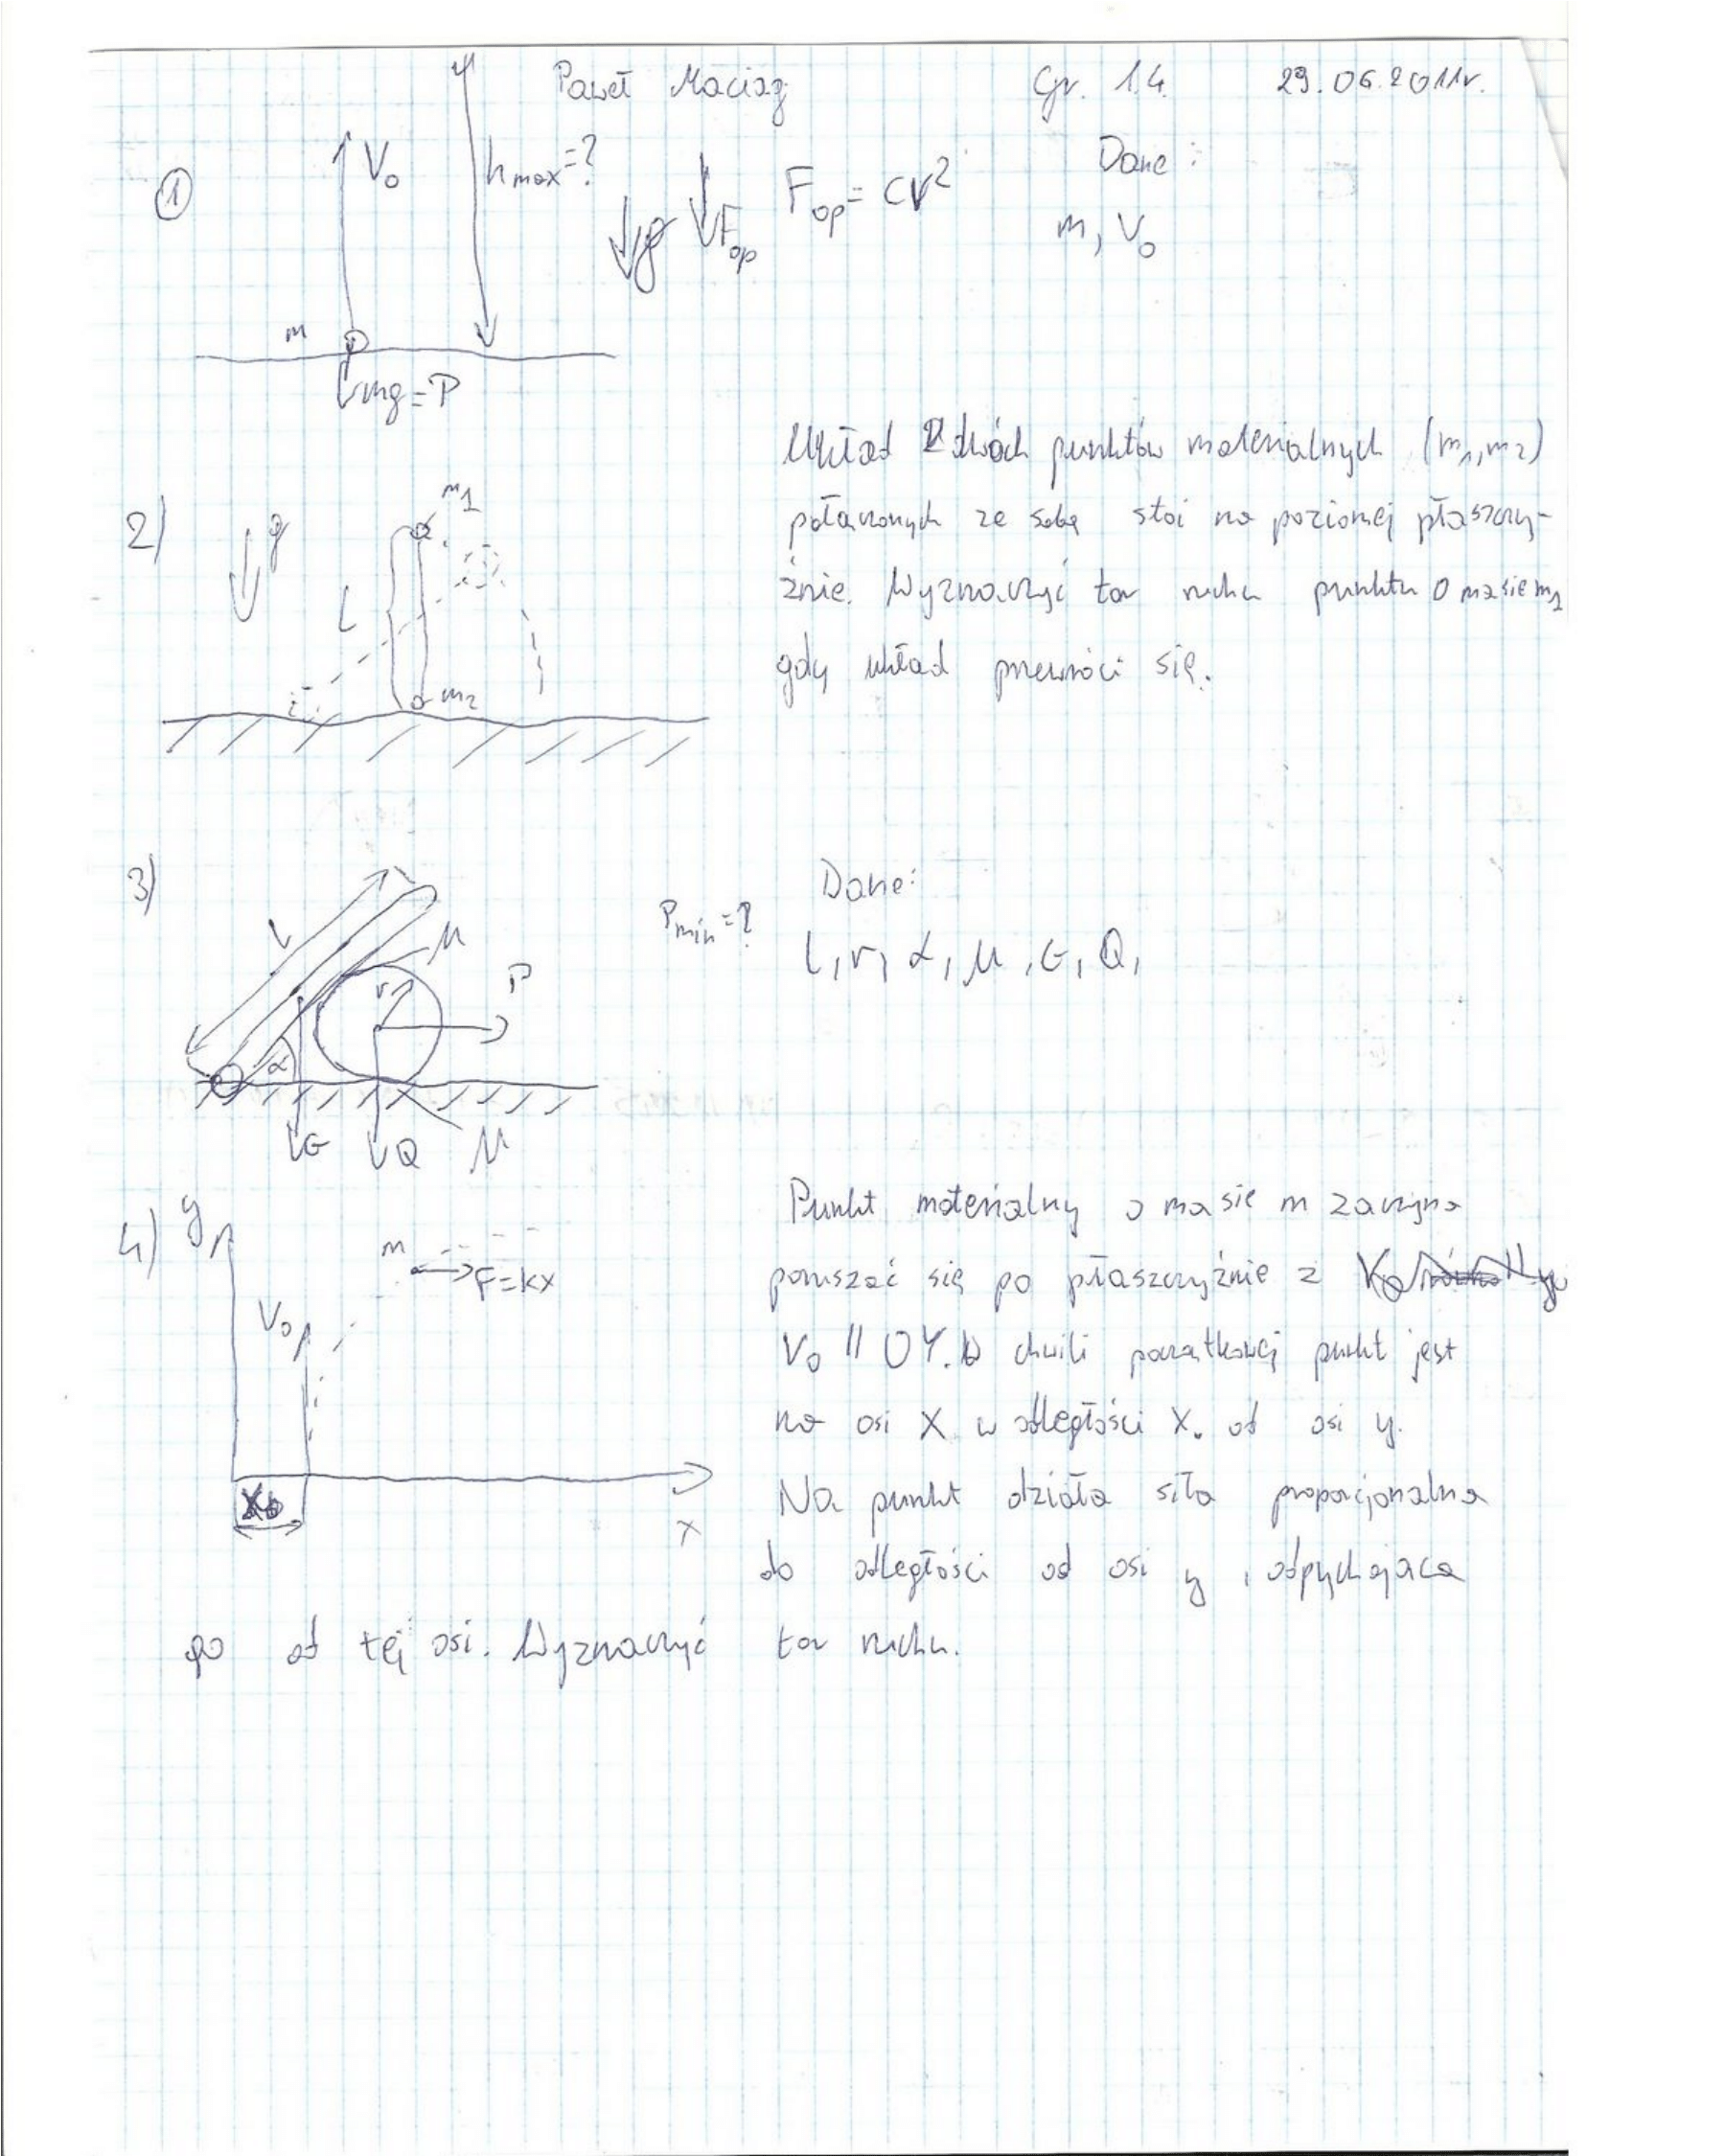 Paweł Maciąg Gr. 1.4. 29.06.2011r.
① V₀ hmax=? g Fop Fop = cv² Dane:
m, V₀
m
mg=P
Układ dwóch punktów materialnych (m₁, m₂)
2) g m₁ połączonych ze sobą stoi na poziomej płaszczy-
L źnie. Wyznaczyć tor ruchu punktu o masie m₁
m₂ gdy układ przewróci się.
3) Pmin=? Dane:
L μ l, r, α, μ, G, Q,
r P
α
G Q μ
4) y Punkt materialny o masie m zaczyna
m F=kx poruszać się po płaszczyźnie z
V₀ V₀ || OY. W chwili początkowej punkt jest
na osi X w odległości X₀ od osi y.
X₀ x Na punkt działa siła proporcjonalna
do odległości od osi y, odpychająca
go od tej osi. Wyznaczyć tor ruchu.